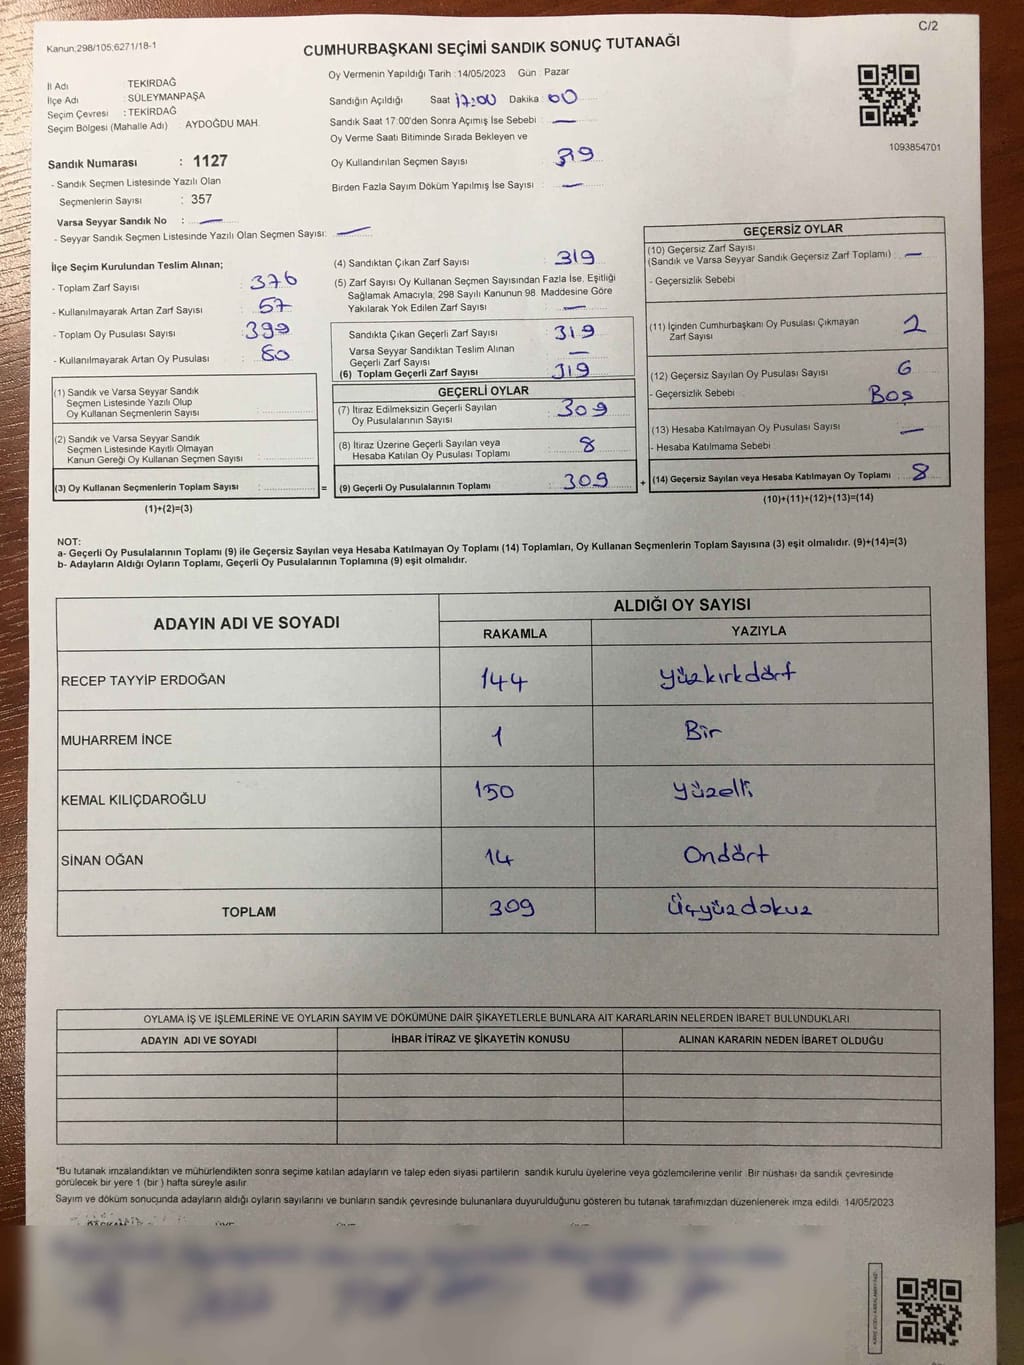 C/2
Kanun;298/105;6271/18-1
CUMHURBAŞKANI SEÇİMİ SANDIK SONUÇ TUTANAĞI
İl Adı : TEKİRDAĞ
İlçe Adı : SÜLEYMANPAŞA
Seçim Çevresi : TEKİRDAĞ
Seçim Bölgesi (Mahalle Adı) : AYDOĞDU MAH.
Sandık Numarası : 1127
- Sandık Seçmen Listesinde Yazılı Olan
Seçmenlerin Sayısı : 357
Varsa Seyyar Sandık No : —
- Seyyar Sandık Seçmen Listesinde Yazılı Olan Seçmen Sayısı: —
Oy Vermenin Yapıldığı Tarih : 14/05/2023 Gün : Pazar
Sandığın Açıldığı Saat 17:00 Dakika : 00
Sandık Saat 17:00'den Sonra Açımış İse Sebebi : —
Oy Verme Saati Bitiminde Sırada Bekleyen ve
Oy Kullandırılan Seçmen Sayısı : 319
Birden Fazla Sayım Döküm Yapılmış İse Sayısı : —
1093854701
İlçe Seçim Kurulundan Teslim Alınan;
- Toplam Zarf Sayısı : 376
- Kullanılmayarak Artan Zarf Sayısı : 57
- Toplam Oy Pusulası Sayısı : 399
- Kullanılmayarak Artan Oy Pusulası : 80
(1) Sandık ve Varsa Seyyar Sandık
Seçmen Listesinde Yazılı Olup
Oy Kullanan Seçmenlerin Sayısı :
(2) Sandık ve Varsa Seyyar Sandık
Seçmen Listesinde Kayıtlı Olmayan
Kanun Gereği Oy Kullanan Seçmen Sayısı :
(3) Oy Kullanan Seçmenlerin Toplam Sayısı : =
(1)+(2)=(3)
(4) Sandıktan Çıkan Zarf Sayısı : 319
(5) Zarf Sayısı Oy Kullanan Seçmen Sayısından Fazla İse, Eşitliği
Sağlamak Amacıyla, 298 Sayılı Kanunun 98. Maddesine Göre
Yakılarak Yok Edilen Zarf Sayısı : —
Sandıkta Çıkan Geçerli Zarf Sayısı : 319
Varsa Seyyar Sandıktan Teslim Alınan
Geçerli Zarf Sayısı : —
(6) Toplam Geçerli Zarf Sayısı : 319
GEÇERLİ OYLAR
(7) İtiraz Edilmeksizin Geçerli Sayılan
Oy Pusulalarının Sayısı : 309
(8) İtiraz Üzerine Geçerli Sayılan veya
Hesaba Katılan Oy Pusulası Toplamı : 8
(9) Geçerli Oy Pusulalarının Toplamı : 309 +
GEÇERSİZ OYLAR
(10) Geçersiz Zarf Sayısı
(Sandık ve Varsa Seyyar Sandık Geçersiz Zarf Toplamı) : —
- Geçersizlik Sebebi :
(11) İçinden Cumhurbaşkanı Oy Pusulası Çıkmayan
Zarf Sayısı : 2
(12) Geçersiz Sayılan Oy Pusulası Sayısı : 6
- Geçersizlik Sebebi : Boş
(13) Hesaba Katılmayan Oy Pusulası Sayısı : —
- Hesaba Katılmama Sebebi :
(14) Geçersiz Sayılan veya Hesaba Katılmayan Oy Toplamı : 8
(10)+(11)+(12)+(13)=(14)
NOT:
a- Geçerli Oy Pusulalarının Toplamı (9) ile Geçersiz Sayılan veya Hesaba Katılmayan Oy Toplamı (14) Toplamları, Oy Kullanan Seçmenlerin Toplam Sayısına (3) eşit olmalıdır. (9)+(14)=(3)
b- Adayların Aldığı Oyların Toplamı, Geçerli Oy Pusulalarının Toplamına (9) eşit olmalıdır.
ADAYIN ADI VE SOYADI
ALDIĞI OY SAYISI
RAKAMLA YAZIYLA
RECEP TAYYİP ERDOĞAN 144 yüzkırkdört
MUHARREM İNCE 1 Bir
KEMAL KILIÇDAROĞLU 150 yüzelli
SİNAN OĞAN 14 Ondört
TOPLAM 309 Üçyüzdokuz
OYLAMA İŞ VE İŞLEMLERİNE VE OYLARIN SAYIM VE DÖKÜMÜNE DAİR ŞİKAYETLERLE BUNLARA AİT KARARLARIN NELERDEN İBARET BULUNDUKLARI
ADAYIN ADI VE SOYADI İHBAR İTİRAZ VE ŞİKAYETİN KONUSU ALINAN KARARIN NEDEN İBARET OLDUĞU
*Bu tutanak imzalandıktan ve mühürlendikten sonra seçime katılan adayların ve talep eden siyasi partilerin sandık kurulu üyelerine veya gözlemcilerine verilir. Bir nüshası da sandık çevresinde
görülecek bir yere 1 (bir ) hafta süreyle asılır.
Sayım ve döküm sonucunda adayların aldığı oyların sayılarını ve bunların sandık çevresinde bulunanlara duyurulduğunu gösteren bu tutanak tarafımızdan düzenlenerek imza edildi. 14/05/2023